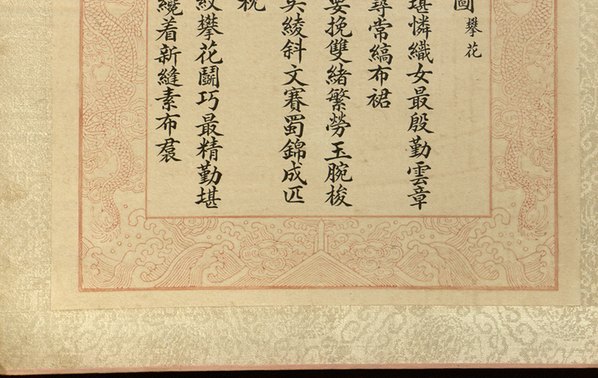 圖攀花
堪憐織女最殷勤雲章
尋常縞布裙
要挽雙緒繁勞玉腕梭
綾斜文賽蜀錦成匹
紋攀花鬭巧最精勤堪
繞着新縫素布裠